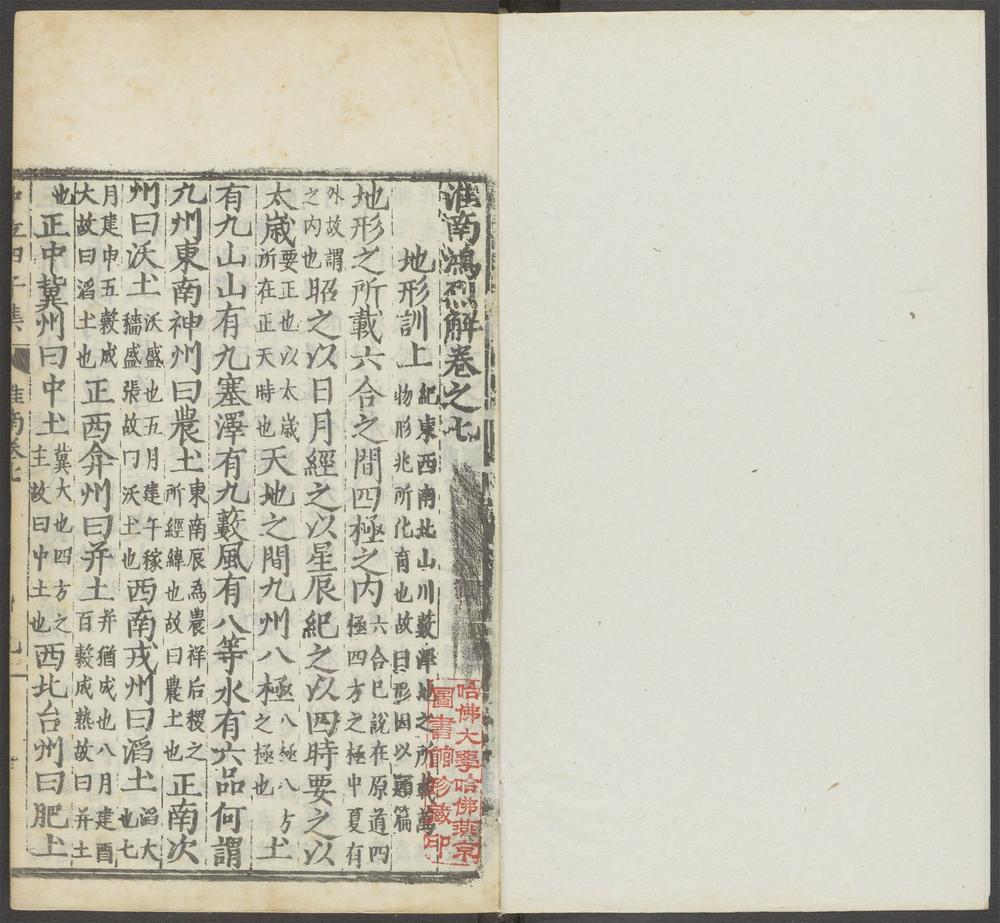 淮南鴻烈解卷之七
地形訓上 紀東西南北山川藪澤地之所載萬
物形兆所化育也故曰形因以題篇
地形之所載六合之間四極之内 六合已說在原道四
極四方之極中夏有
外故謂
之内也 昭之以日月經之以星辰紀之以四時要之以
太歲 要正也以太歲
所在正天時也 天地之間九州八極 八極八方
之極也 土
有九山山有九塞澤有九藪風有八等水有六品何謂
九州東南神州曰農土 東南辰爲農祥后稷之
所經緯也故曰農土也 正南次
州曰沃土 沃盛也五月建午稼
穡盛張故曰沃土也 西南戎州曰滔土 滔大
也七
月建申五穀成
大故曰滔土也 正西弇州曰并土 并猶成也八月建酉
百穀成熟故曰并土
也 正中冀州曰中土 冀大也四方之
主故曰中土也 西北台州曰肥土
中立四子集 淮南卷七
哈佛大學哈佛燕京
圖書館珍藏印